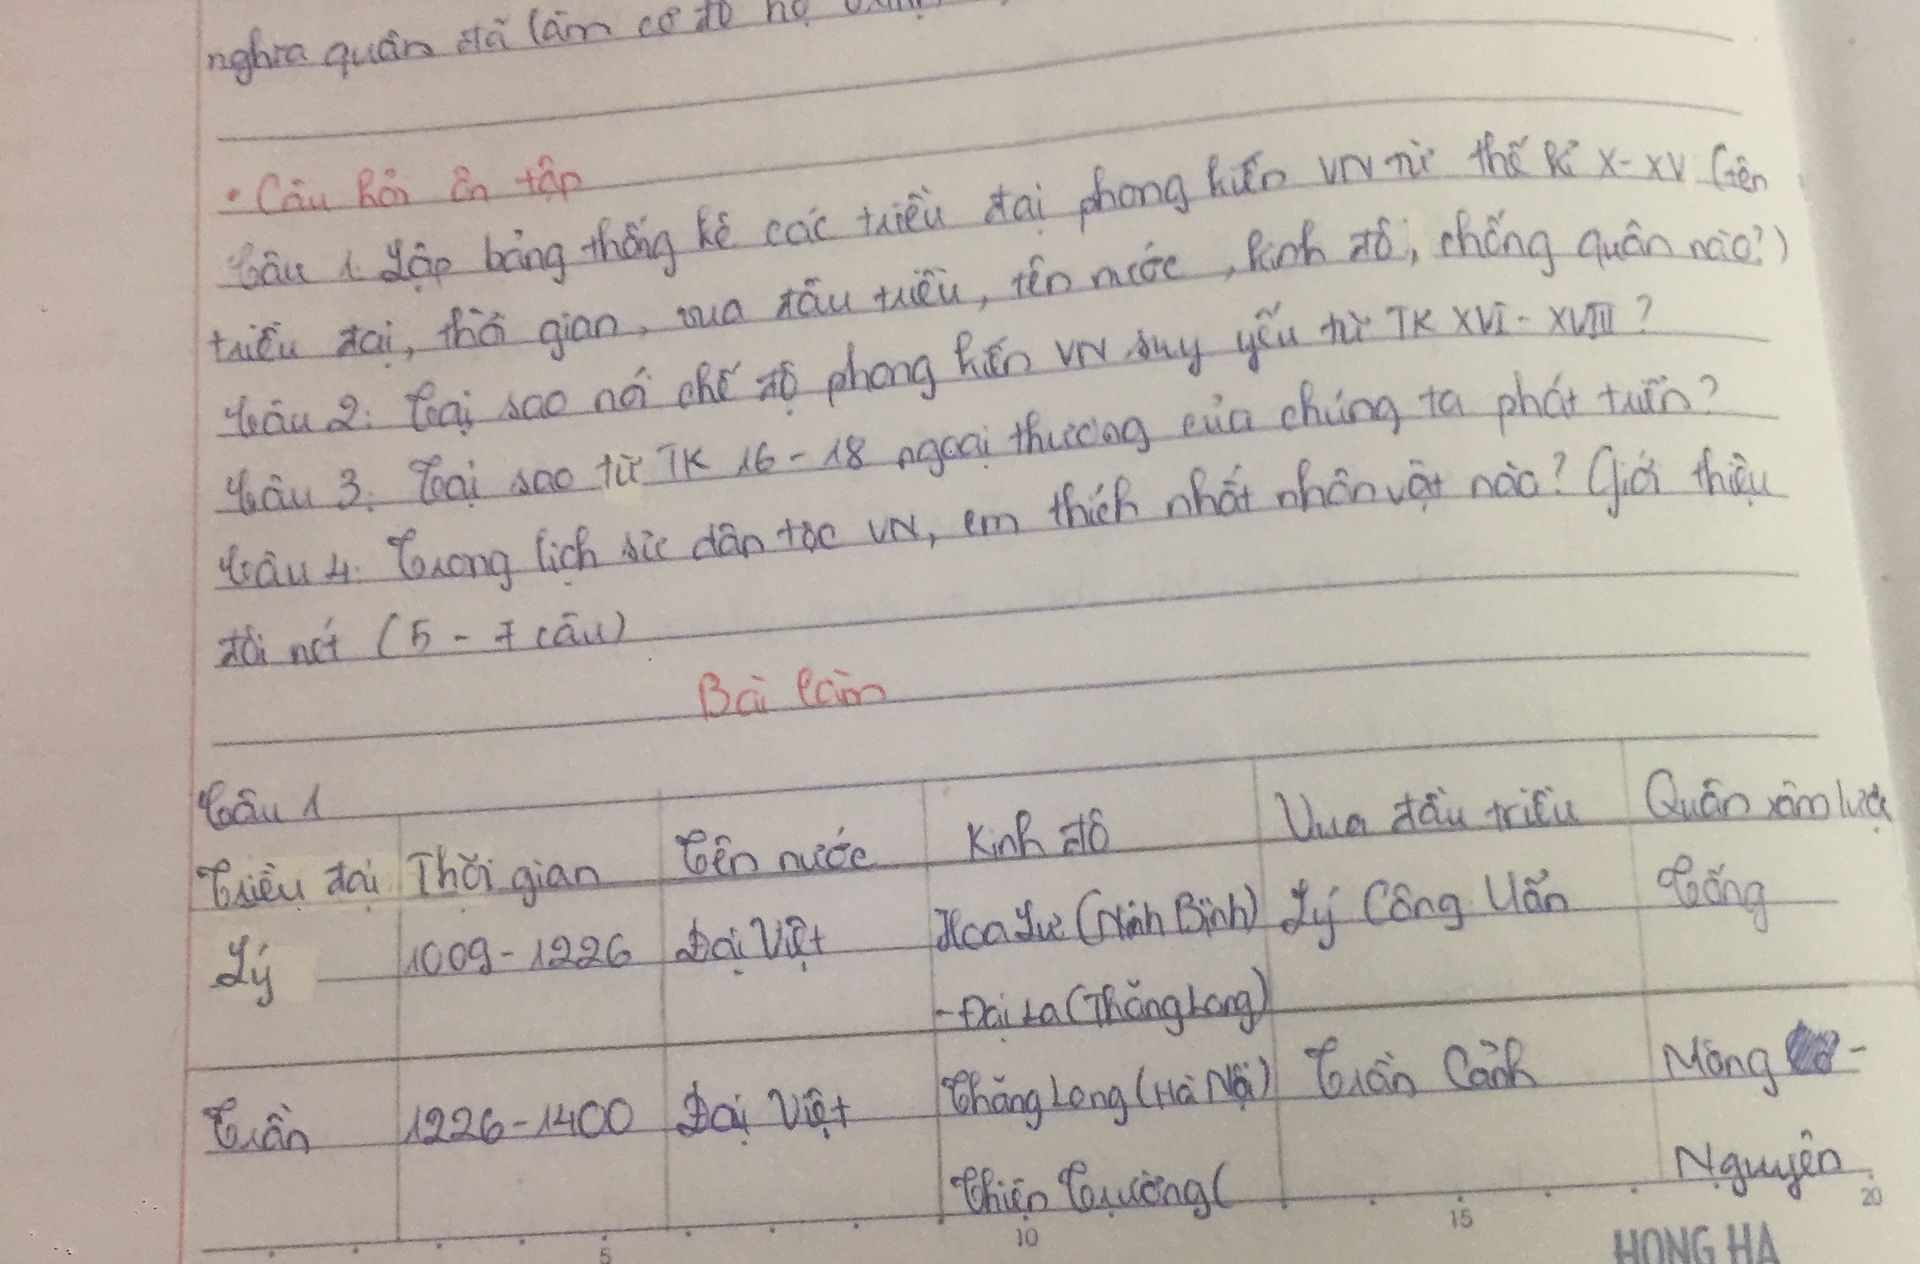 nghĩa quân đã làm cờ đỏ họ
• Câu hỏi ôn tập
Câu 1. Lập bảng thống kê các triều đại phong kiến VN từ thế kỉ X-XV (tên
triều đại, thời gian, vua đầu triều, tên nước, kinh đô, chống quân nào?)
Câu 2: Tại sao nói chế độ phong kiến VN suy yếu từ TK XVI - XVIII?
Câu 3: Tại sao từ TK 16 - 18 ngoại thương của chúng ta phát triển?
Câu 4. Trong lịch sử dân tộc VN, em thích nhất nhân vật nào? Giới thiệu
đôi nét (5 - 7 câu)
Bài làm
Câu 1
Triều đại Thời gian Tên nước Kinh đô Vua đầu triều Quân xâm lược
Lý 1009 - 1226 Đại Việt Hoa Lư (Ninh Bình) Lý Công Uẩn Tống
- Đại La (Thăng Long)
Trần 1226 - 1400 Đại Việt Thăng Long (Hà Nội) Trần Cảnh Mông -
Thiên Trường ( Nguyên
5 10 15 20
HONG HA